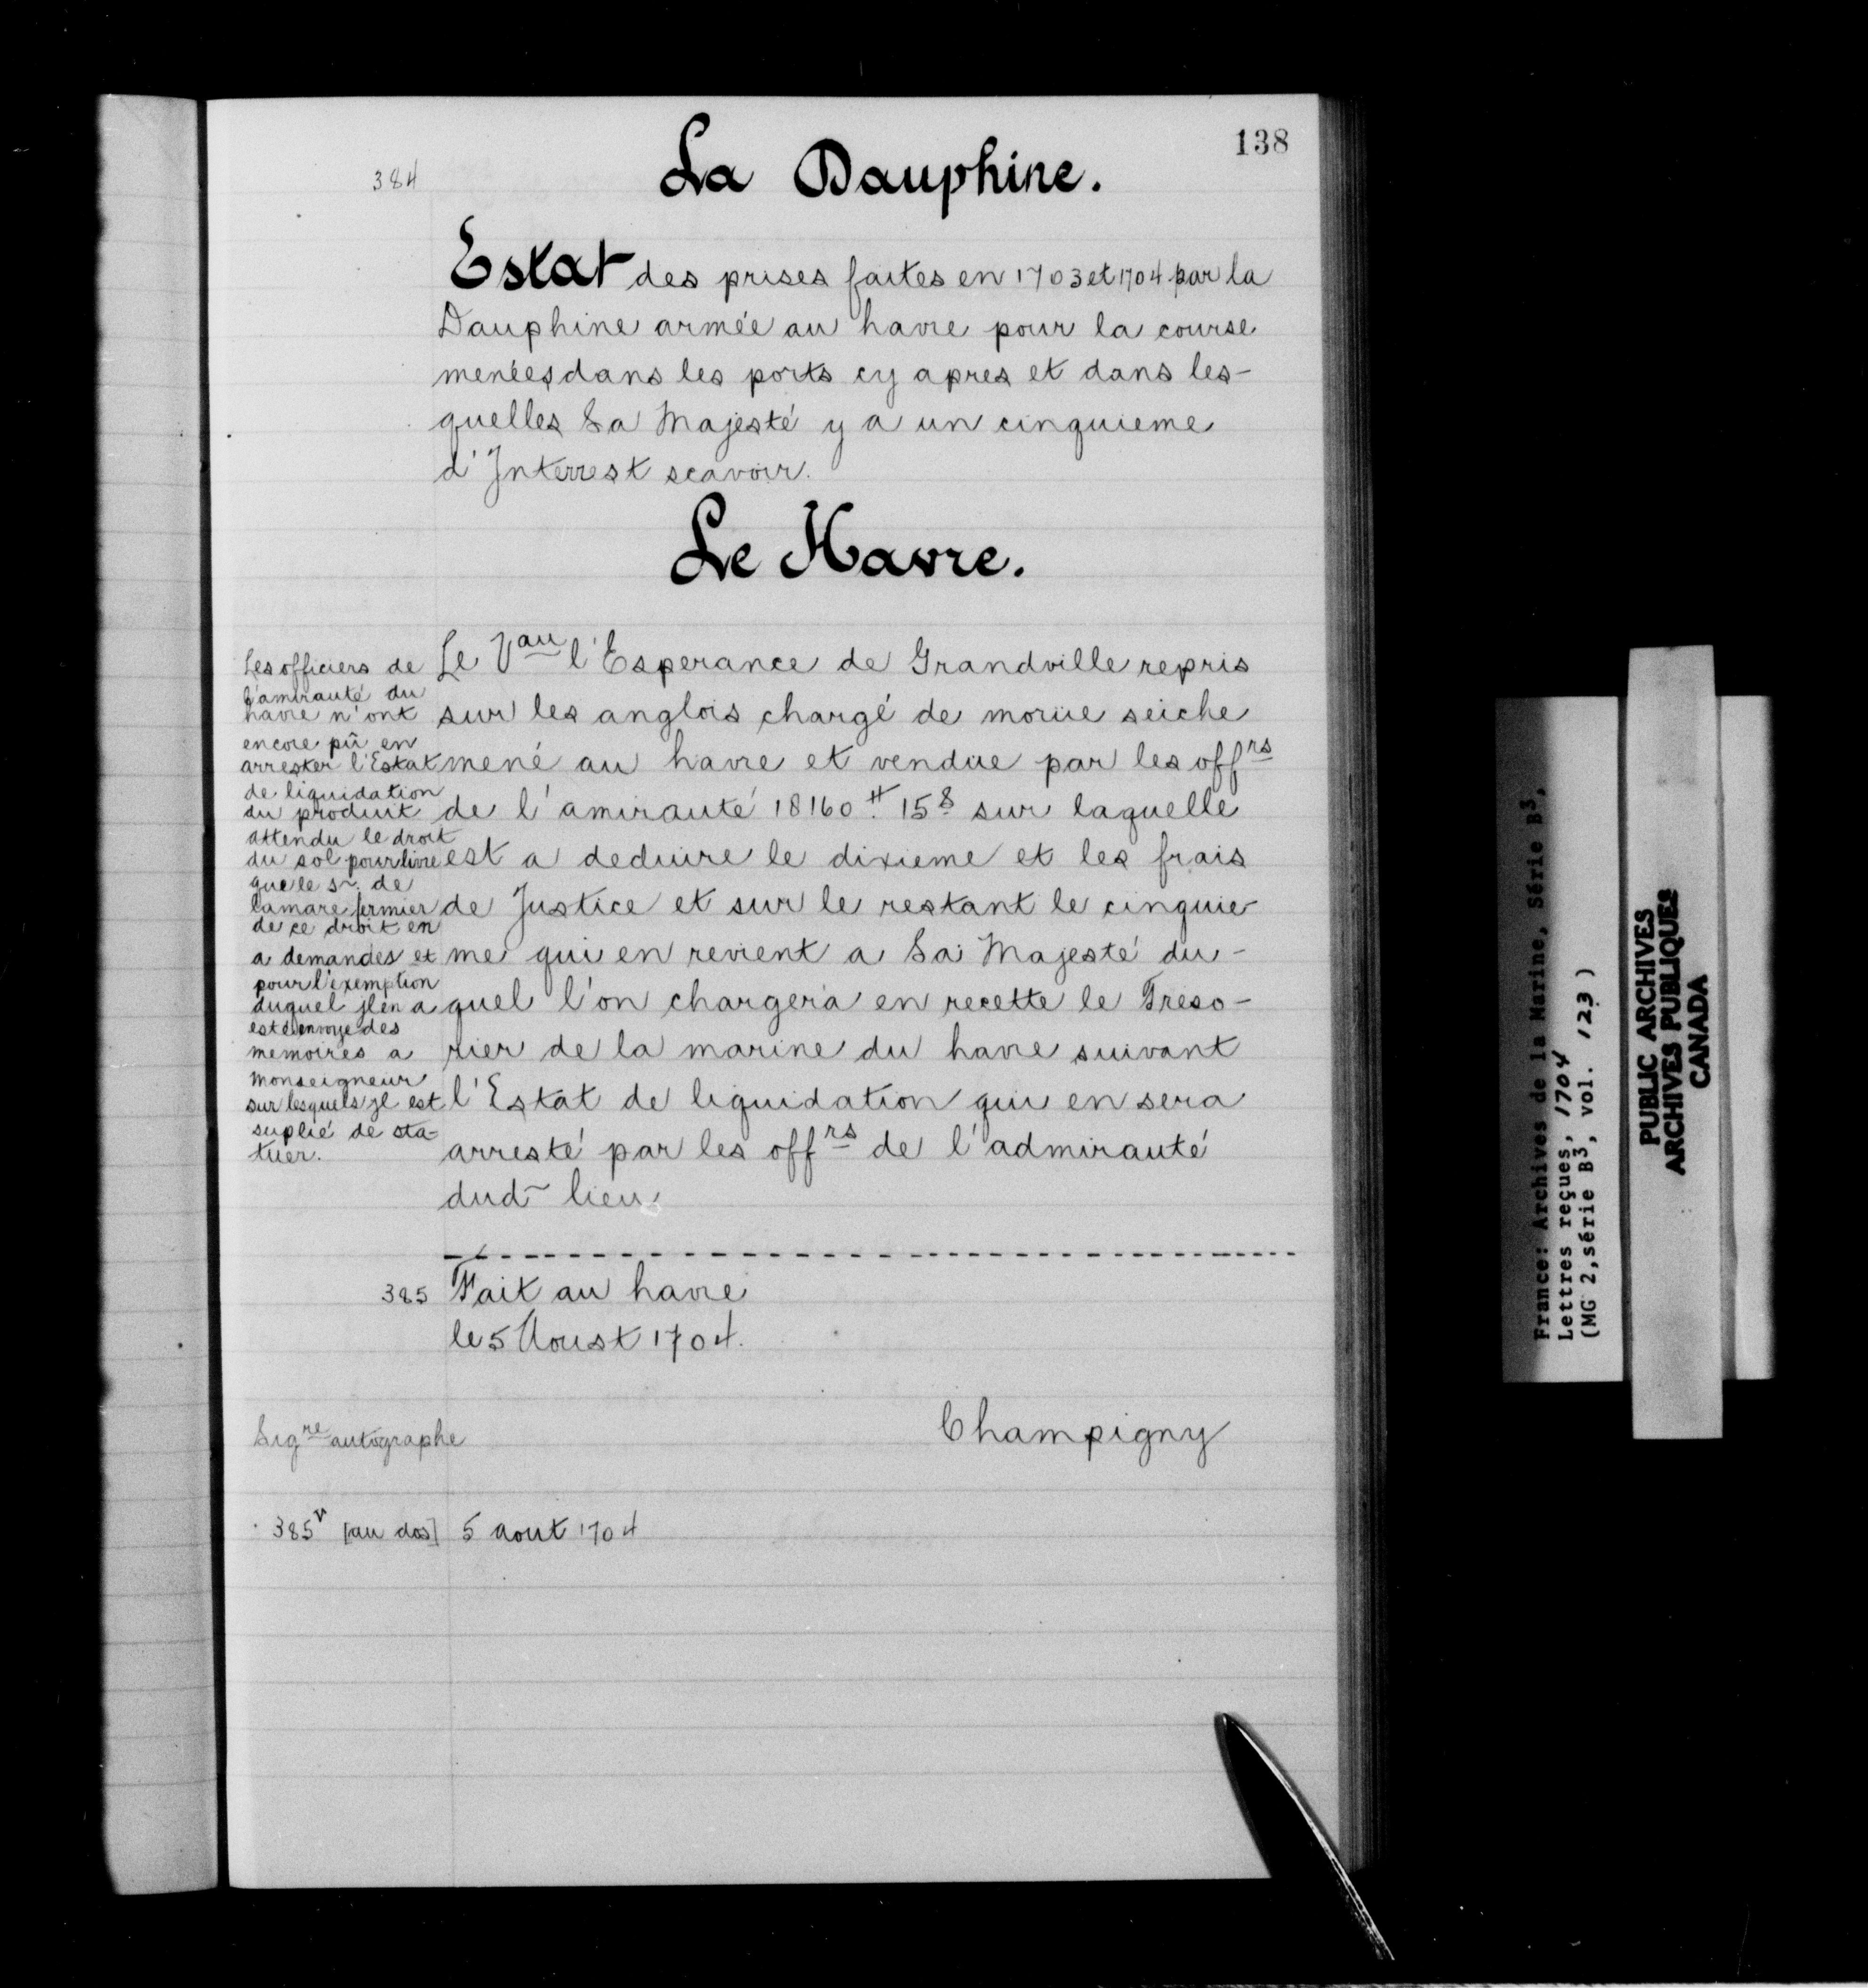 138
384
La Dauphine.
Estat des prises faites en 1703 et 1704 par la
Dauphine armée au havre pour la course
menées dans les ports cy apres et dans les-
quelles Sa Majesté y a un cinquieme
d'Interrest scavoir.
Le Havre.
Les officiers de
l'amirauté du
havre n'ont
encore pû en
arrester l'Estat
de liquidation
du produit
attendu le droit
du sol pour livre
que le sr. de
lamare fermier
de ce droit en
a demandes et
pour l'exemption
duquel jl en a
esté envoye des
memoires a
Monseigneur
sur lesquels jl est
suplié de sta-
tuer.
Le Vau l'Esperance de Grandville repris
sur les anglois chargé de morüe seiche
mené au havre et vendue par les offrs
de l'amirauté 18160 ₶. 15 s sur laquelle
est a deduire le dixieme et les frais
de Justice et sur le restant le cinquie-
me qui en revient a Sa Majesté du-
quel l'on chargera en recette le Treso-
rier de la marine du havre suivant
l'Estat de liquidation qui en sera
arresté par les offrs de l'admirauté
dud~ lieu
385 Fait au havre
le 5 Aoust 1704.
Sigre autographe
Champigny
385v [au dos] 5 aout 1704
France: Archives de la Marine, Série B3,
Lettres reçues, 1704
(MG 2, série B3, vol. 123)
PUBLIC ARCHIVES
ARCHIVES PUBLIQUES
CANADA